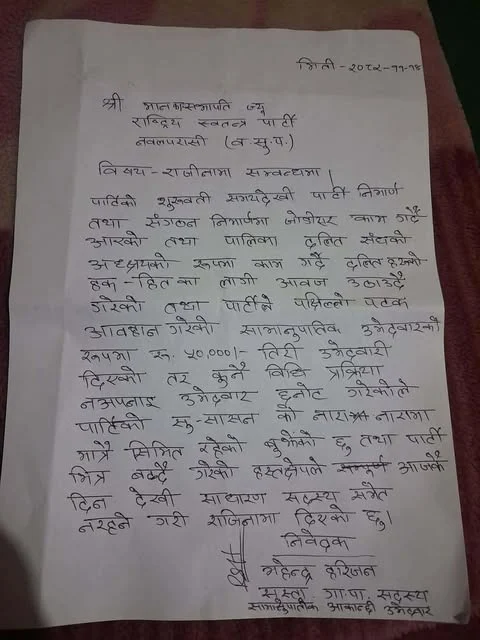 मिती - २०८२-११-१४
श्री मान सभापति ज्यू
राष्ट्रिय स्वतन्त्र पार्टी
नवलपरासी (व.सु.प.)
विषय - राजीनामा सम्वन्धमा।
पार्टिको शुरुवती समयदेखी पार्टी निमार्ण
तथा संगठन निमार्णमा जोडीएर काम गर्दै
आएको तथा पालिका दलित संघको
अध्यक्षको रूपमा काम गर्दै दलितहरुको
हक - हित का लागी आवज उठाउदै
गरेको तथा पार्टीले पछिल्लो पटक
आवहान गरेको सामानुपातिक उमेदवारको
रूपमा रू. ५०,०००/- तिरी उमेदवारी
दिएको तर कुनै विधि प्रक्रिया
नअपनाइ उमेदवार छनोट गरेकोले
पार्टिको सु-सासन को नारा नारामा
मात्रै सिमित रहेको बुझेको छु तथा पार्टी
भित्र बढ्दै गरेको हस्तक्षेपले आजकै
दिन देखी साधारण सदस्य समेत
नरहने गरी राजिनामा दिएको छु।
निवेदक
महेन्द्र हरिजन
सुस्ता गा.पा. सदस्य
सामानुपातीक आकांक्षी उमेदवार